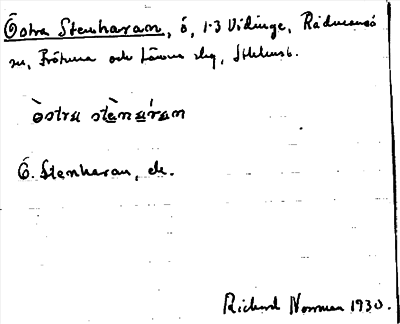 Östra Stenharan, ö, 1·3 Vidinge, Rådmansö
sn, Frötuna och Länna slg, Sthlmsl.
òstra stènáran
Ö. Stenharan, ek.
Richard Norrman 1930.